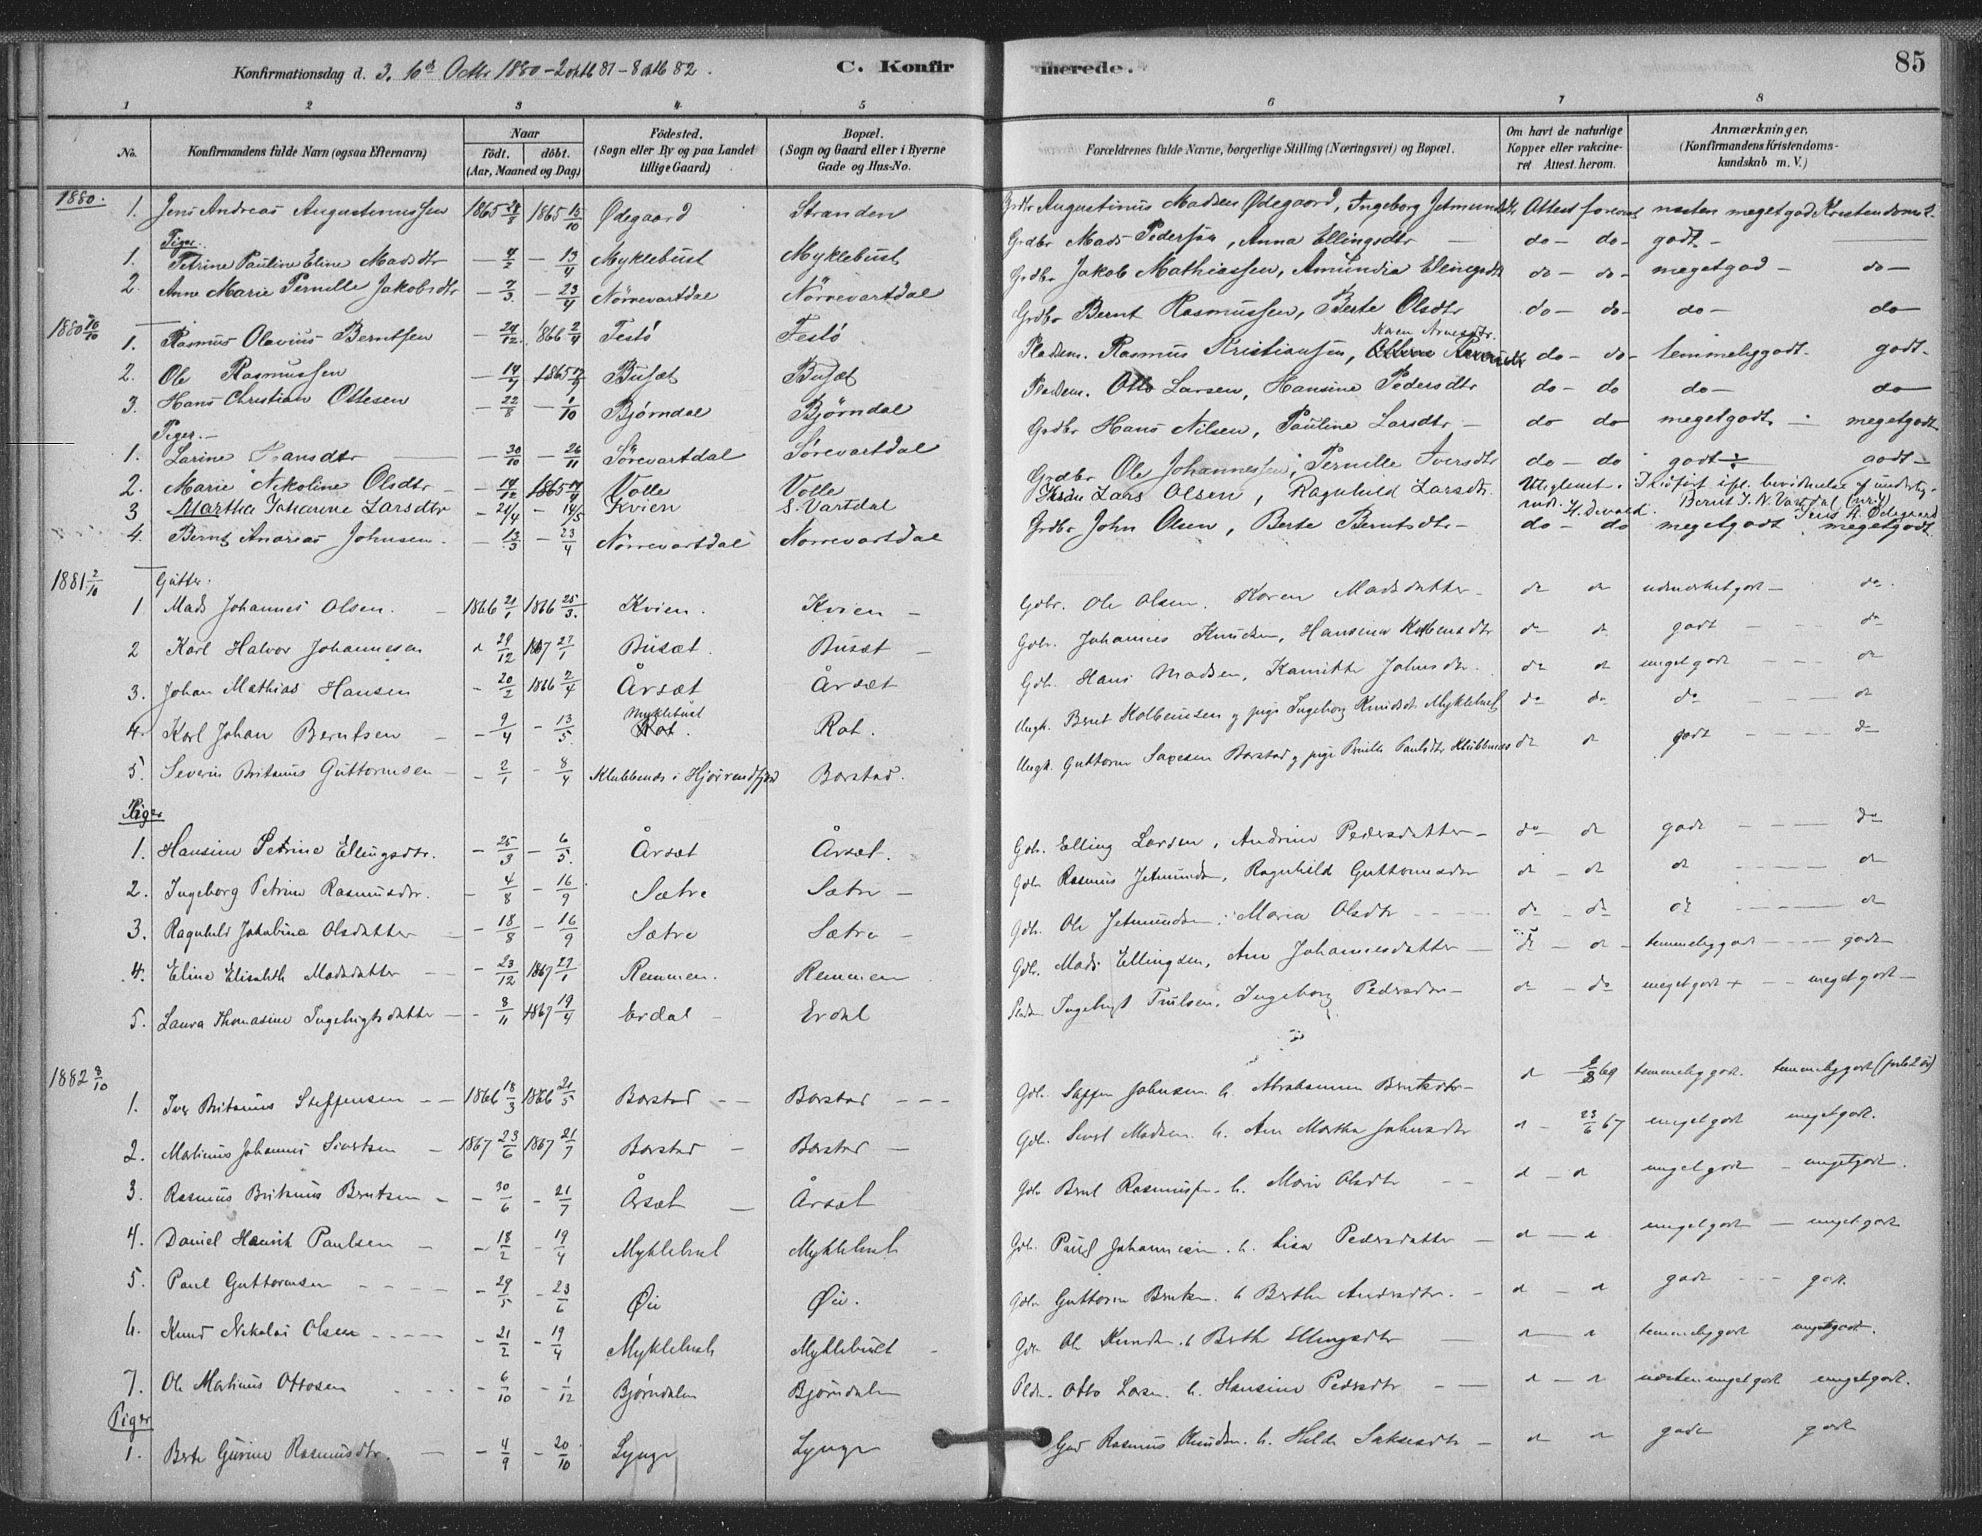 Konfirmationsdag d. 3. 10d Octbr 1880 - 2 oktb 81 - 8 oktb 82. C. Konfirmerede. 85
1 2 3 4 5 6 7 8
No. Konfirmandens fulde Navn (ogsaa Efternavn) Naar født. døbt. (Aar, Maaned og Dag) Fødested. (Sogn eller By og paa Landet tillige Gaard) Bopæl. (Sogn og Gaard eller i Byerne Gade og Hus-No. Forældrenes fulde Navne, borgerlige Stilling (Næringsvei) og Bopæl. Om havt de naturlige Kopper eller vakcineret Attest herom. Anmærkninger. (Konfirmandens Kristendomskundskab m. V.)
1880.
1. Jens Andreas Augustinussen 1865 28/8 1865 15/10 Ødegaard Stranden Grdbr Augustinus Madsen Ødegaard, Ingeborg Jetmundsdtr Attest forevist næsten megetgod Kristendomsk.
Piger.
1. Petrine Pauline Eline Madsdtr - 4/2 - 13/4 Myklebust Myklebust Grdbr Mads Pedersen, Anna Ellingsdtr do - do - godt -
2. Anne Marie Pernille Jakobsdtr - 7/3 - 23/4 Nörrevartdal Nörrevartdal Grdbr Jakob Mathiassen, Amundia Elingsdtr do - do - megetgod - do -
1880 10/10
1. Rasmus Olavius Berntsen - 24/12 1866 2/4 Festö Festö Grdbr Bernt Rasmussen, Berte Olsdtr do - do - do - do
2. Ole Rasmussen - 14/7 1865 Busæt Busæt Pladsm. Rasmus Kristiansen, Karen Arnesdtr. do - do - temmeliggodt - godt -
3. Hans Christian Ottesen - 22/8 - 1/10 Bjørndal Björndal Pladsm. Otto Larsen, Hansine Pedersdtr do - do do - do
Piger. -
1. Larine Hansdtr - 30/10 - 26/11 Sörevartdal Sörevartdal Grdbr Hans Nilsen, Pauline Larsdtr - do do megetgodt - megetgodt
2. Marie Nikoline Olsdtr - 14/12 1865 Volle Volle Grdbr Ole Johannessen, Pernille Iversdtr do - do godt - godt -
3 Martha Johanne Larsdtr - 21/4 - 14/5 Kvien S. Vartdal Lars Olsen, Ragnhild Larsdtr. Uliglemt. H. Devold. Bernt J. N. Vartdal (nr. 4) Jens A. Ødegaard
4. Bernt Anarias Johnsen. - 13/3 - 23/4 Nörrevartdal Nörrevartdal Grdbr John Olsen, Berte Berntsdtr - do - do megetgodt megetgodt.
1881 2/10 Gutter.
1 Mads Johannes Olsen. - 1866 21/1 1866 25/3. Kvien. Kvien - Gdbr. Ole Olsen. Karen Madsdatter - do do udmærket godt - do.
2 Karl Halvor Johannesen " 29/12 1867 27/1 Busæt. Busæt - Gdb. Johannes Knudsen, Hansine Kolbensdtr do do godt - - do
3. Johan Mathias Hansen - 20/2 1866 2/4 Årsæt Årsæt Gdb. Hans Madsen, Kamitte Johnsdtr. do do meget godt - - do
4. Karl Johan Berntsen - - 9/4 - 13/5. Myklebust Rot. Rot. Ungk. Bernt Kolbeinsen og pige Ingeborg Knudsdt Myklebust do do do - - do
5. Severin Britanus Guttormsen - - 2/1 - 8/4 Klubbenes i Hjörrendfjord Borstad. Ungk. Guttorm Saxesen Borstad og pige Pernille Paulsdtr Klubbenes do do godt - - do
Piger
1. Hansine Petrine Ellingsdtr. - 25/3 - 6/5. Årsæt Årsæt. Gdb. Elling Larsen, Andrine Pedersdatter - do - do godt - - do
2. Ingeborg Petrine Rasmusdtr. - 4/8 - 16/9 Sætre Sætre - Gdb. Rasmus Jetmundsen, Ragnhild Guttormsdtr do - do do - - do
3. Ragnhild Jakobine Olsdatter - 18/8 - 16/9 Sætre Sætre - Gdb. Ole Jetmundsen, Maria Olsdtr - - do - do do - - do
4. Eline Elisabeth Madsdatter - - 23/12 1867 27/1 Remmen. Remmen Gdb. Mads Ellingsen, Ane Johannesdatter - do - do - temmeliggodt - - godt
5. Laura Thomasine Ingebrigtsdatter - - 8/11 1867 19/4 Erdal - Erdal Ingebrigt Trulsen, Ingeborg Pedersdtr - do - do meget godt + - - meget godt -
1882 8/10
1. Iver Britanus Steffensen - - 1866 18/3 1866 21/5 Borstad - - Borstad - - - Gdb. Steffen Johnsen. h. Abrahamine Berntsdtr - " 9/8 69 temmeliggodt temmeliggodt
2. Martinus Johannes Sivertsen - 1867 23/6 1867 21/7 Borstad - Borstad - Gdb. Sivert Madsen. h. Ane Martha Johnsdtr " - 23/6 67 meget godt meget godt.
3. Rasmus Britanus Berntsen - - 30/6 - 21/7 Årsæt - Årsæt Gdb. Bernt Rasmussen. h. Marie Olsdtr - - " - " meget godt - meget godt.
4. Daniel Henrik Paulsen - - 18/2 - 19/4 Myklebust Myklebust Gdb. Paul Johannesen. h. Lisa Pedersdatter - " - " meget godt - meget godt
5. Paul Guttormsen - - - - 29/5 - 23/6 Øie Øie. Gdbr Guttorm Berntsen. h Berthe Andersdtr. - " - " godt - - godt.
6. Knud Nikolai Olsen - - - - - 21/2 - 19/4 Myklebust Myklebust - Gdb. Ole Knudsen. h Berthe Ellingsdtr - " - " temmeliggodt meget godt.
7. Ole Martinus Ottosen - - - 6/10 - 1/12 Bjørndalen Bjørndalen Pldm. Otto Larsen. h. Hansine Pedersdtr - - " - " næsten meget godt meget godt.
Piger
1. Berte Gurine Rasmusdtr. - - 4/9 - 20/10 Lynge Lynge Rasmus Knudsen. h. Hilde Saksesdtr - " - " godt godt